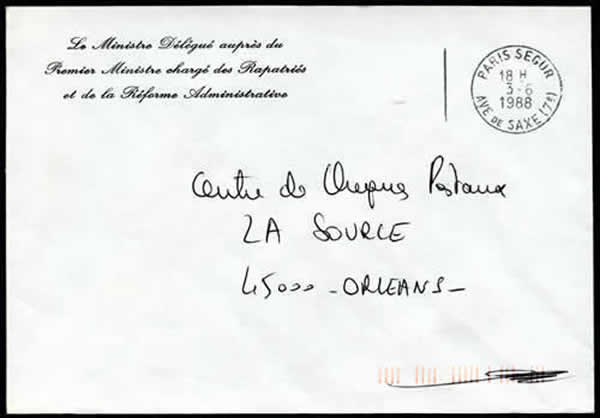 Le Ministre Délégué auprès du
Premier Ministre chargé des Rapatriés
et de la Réforme Administrative
PARIS SEGUR
18 H
3-6
1988
AVE DE SAXE (7e)
Centre de Cheques Postaux
LA SOURCE
45000 - ORLEANS -